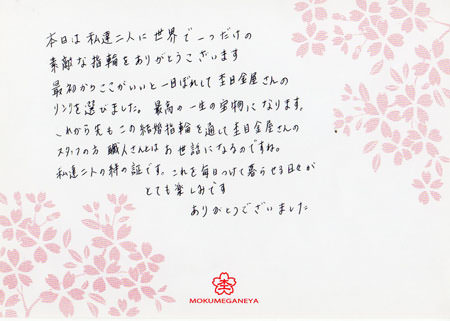 本日は私達二人に世界で一つだけの
素敵な指輪をありがとうございます
最初からここがいいと一目ぼれして杢目金屋さんの
リングを選びました。最高の一生の宝物になります。
これから先もこの結婚指輪を通して杢目金屋さんの
スタッフの方 職人さんとはお世話になるのですね。
私達二人の絆の証です。これを毎日つけて暮らせる日々が
とても楽しみです
ありがとうございました
MOKUMEGANEYA